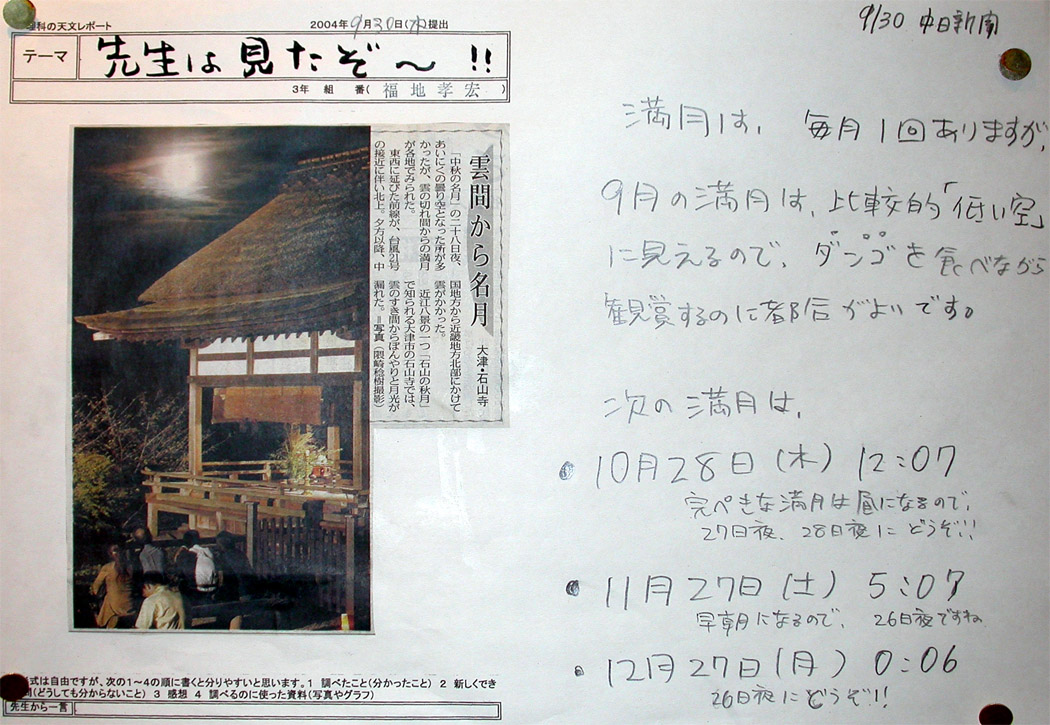 理科の天文レポート
2004年9月30日(木)提出
テーマ
先生は見たぞ〜!!
3年 組 番( 福地孝宏 )
雲間から名月
大津・石山寺
「中秋の名月」の二十八日夜、
あいにくの曇り空となった所が多
かったが、雲の切れ間からの満月
が各地でみられた。
東西に延びた前線が、台風21号
の接近に伴い北上。夕方以降、中
国地方から近畿地方北部にかけて
雲がかかった。
近江八景の一つ「石山の秋月」
で知られる大津市の石山寺では、
雲のすき間からぼんやりと月光が
漏れた。＝写真(隈崎稔樹撮影)
式は自由ですが、次の1〜4の順に書くと分りやすいと思います。1 調べたこと(分かったこと) 2 新しくでき
問(どうしても分からないこと) 3 感想 4 調べるのに使った資料(写真やグラフ)
先生から一言
9/30 中日新聞
満月は、毎月1回ありますが、
9月の満月は、比較的「低い空」
に見えるので、ダンゴを食べながら
観賞するのに都合がよいです。
次の満月は、
● 10月28日(木) 12:07
完ぺきな満月は昼になるので、
27日夜、28日夜にどうぞ!!
● 11月27日(土) 5:07
早朝になるので、26日夜ですね
● 12月27日(月) 0:06
26日夜にどうぞ!!